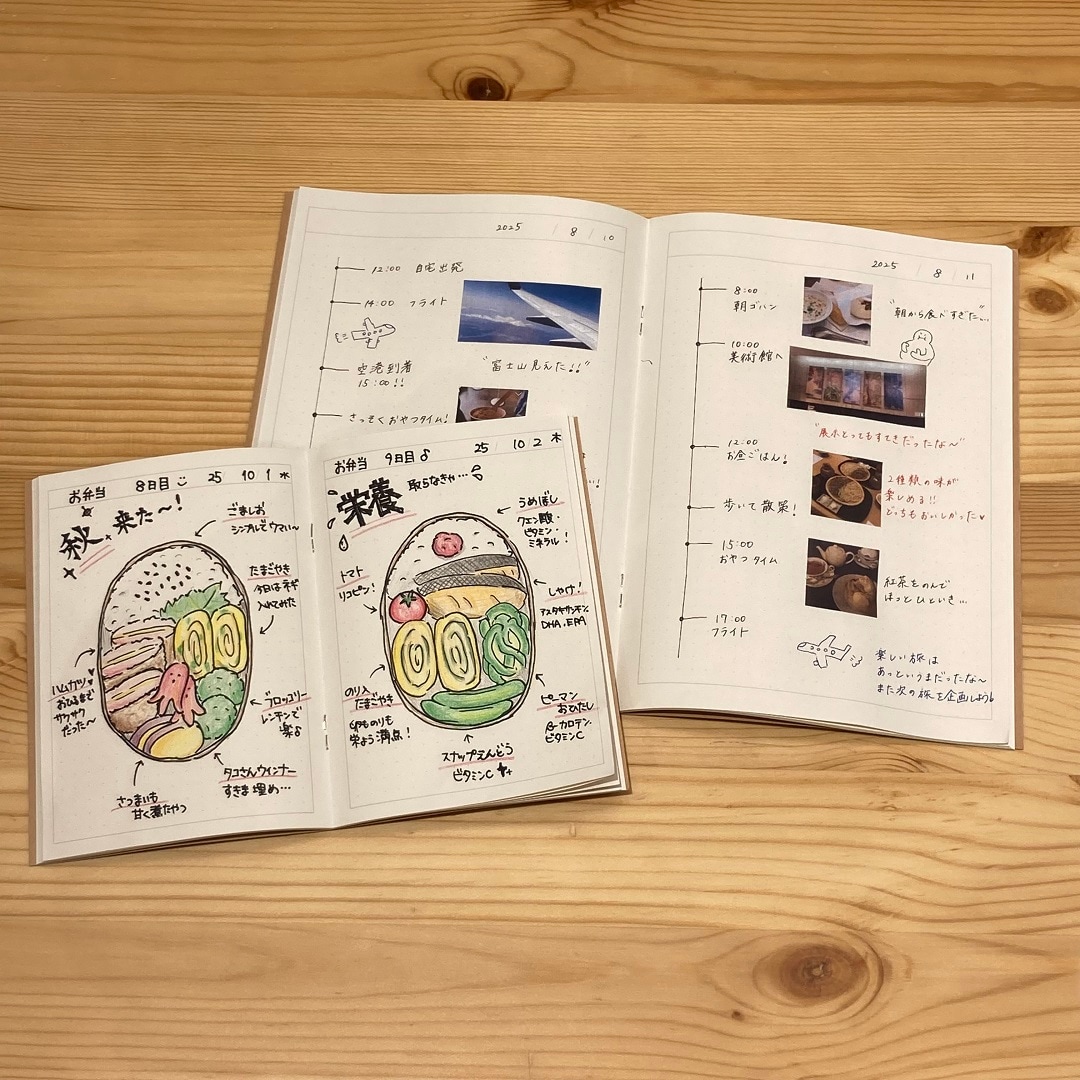 2025 / 8 / 10
12:00 自宅出発
14:00 フライト
空港到着
15:00!!
"富士山見えた!!"
さっそくおやつタイム!
2025 / 8 / 11
8:00
朝ゴハン
"朝から食べすぎた…"
10:00
美術館へ
"展示とってもすてきだったな〜"
12:00
お昼ごはん!
2種類の味が
楽しめる!!
どっちもおいしかった♥
歩いて散策!
15:00
おやつタイム
紅茶をのんで
ほっとひといき…
17:00
フライト
楽しい旅は
あっというまだったな〜
また次の旅を企画しよう!
お弁当 8日目 25 10 1 水
秋来た〜!
ごましお
シンプルでウマい〜
たまごやき
今日はネギ
入れてみた
ハムカツ♥
おひるまで
サクサク
だった〜
ブロッコリー
レンチンで
楽♪
タコさんウインナー
すきま埋め…
さつまいも
甘く煮たやつ
お弁当 9日目♪ 25 10 2 木
栄養取らなきゃ…
うめぼし
クエン酸・
ビタミン・
ミネラル!
トマト
リコピン!
しゃけ!
アスタキサンチン
DHA、EPA
のり入
たまごやき
卵ものりも
栄よう満点!
ピーマン
おひたし
β-カロテン・
ビタミンC
スナップえんどう
ビタミンC